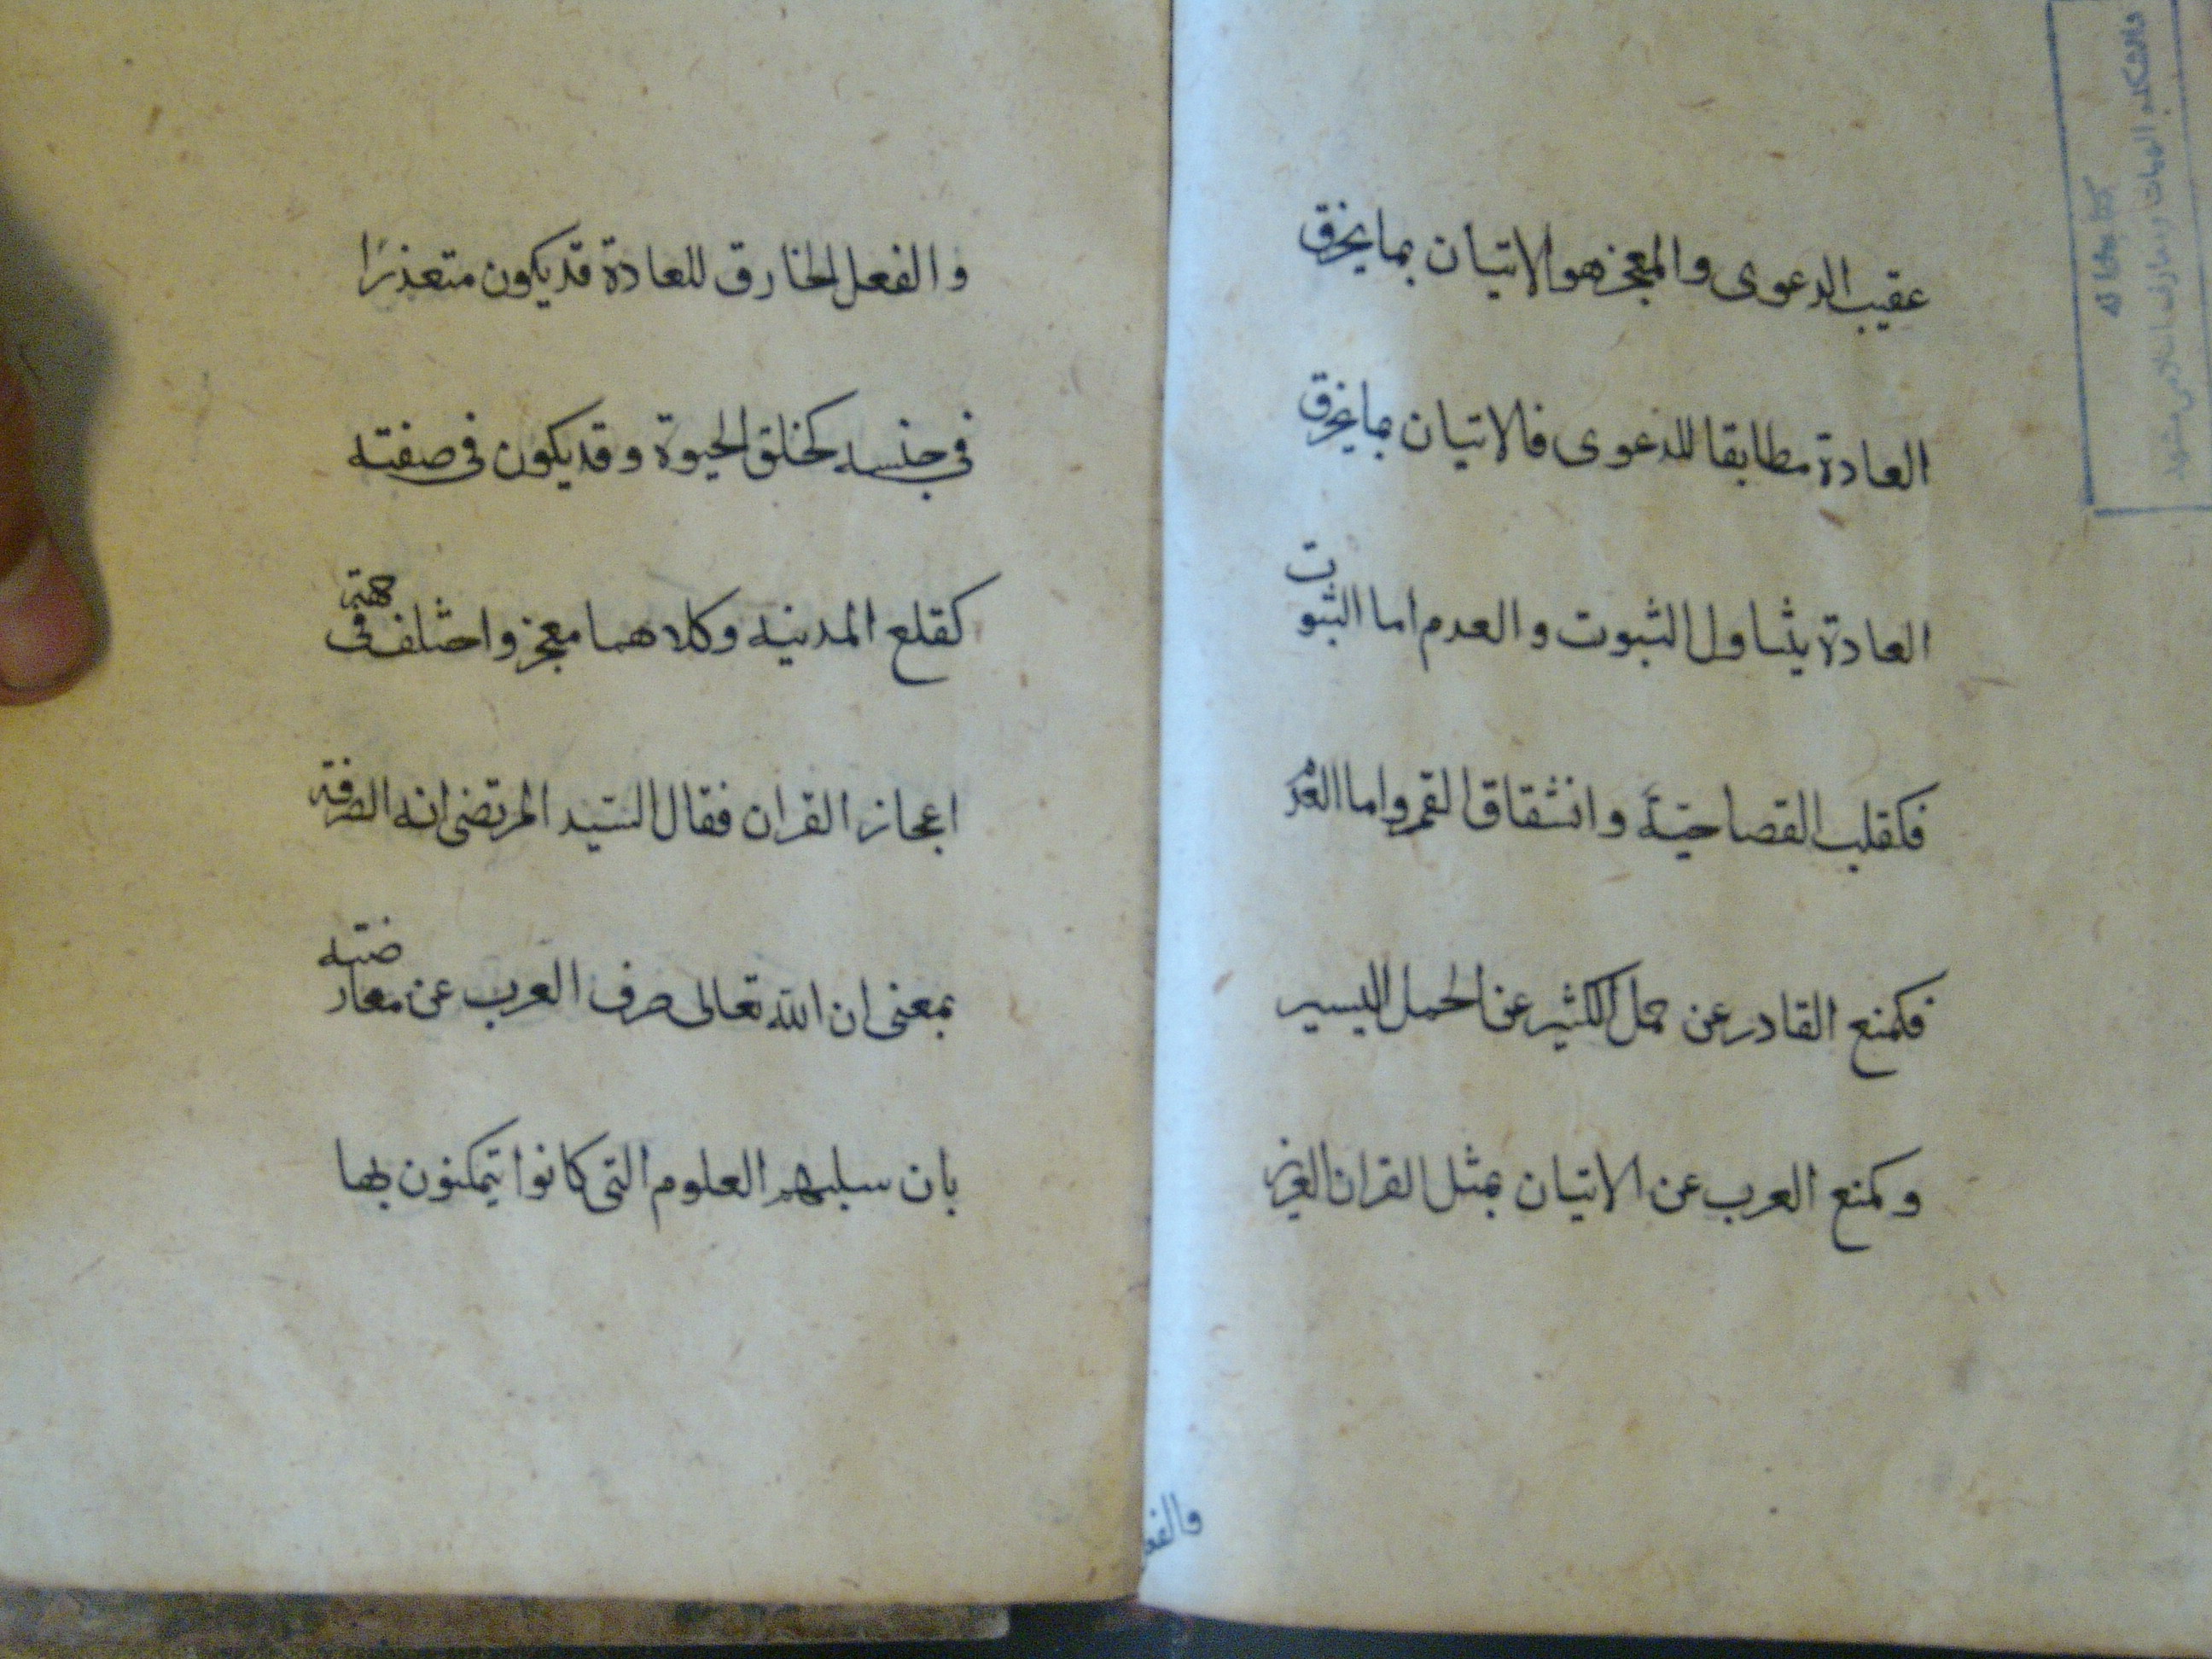 عقيب الدعوى والمعجز هو الاتيان بما يخرق
العادة مطابقا للدعوى فالاتيان بما يخرق
العادة يتناول الثبوت والعدم اما الثبوت
فكقلب العصا حيّة وانشقاق القمر واما العدم
فكمنع القادر عن حمل الكثير عن الحمل اليسير
وكمنع العرب عن الاتيان بمثل القران العزيز
والفعل
والفعل الخارق للعادة قد يكون متعذرًا
في جنسه كخلق الحيوة وقد يكون في صفته
كقلع المدنيه وكلاهما معجز واختلف في جهة
اعجاز القران فقال السّيد المرتضى انه الصرفة
بمعنى ان الله تعالى صرف العرب عن معارضته
بان سلبهم العلوم التي كانوا يتمكنون بها
كتابخانه
دانشكده الهيات ومعارف اسلامى مشهد